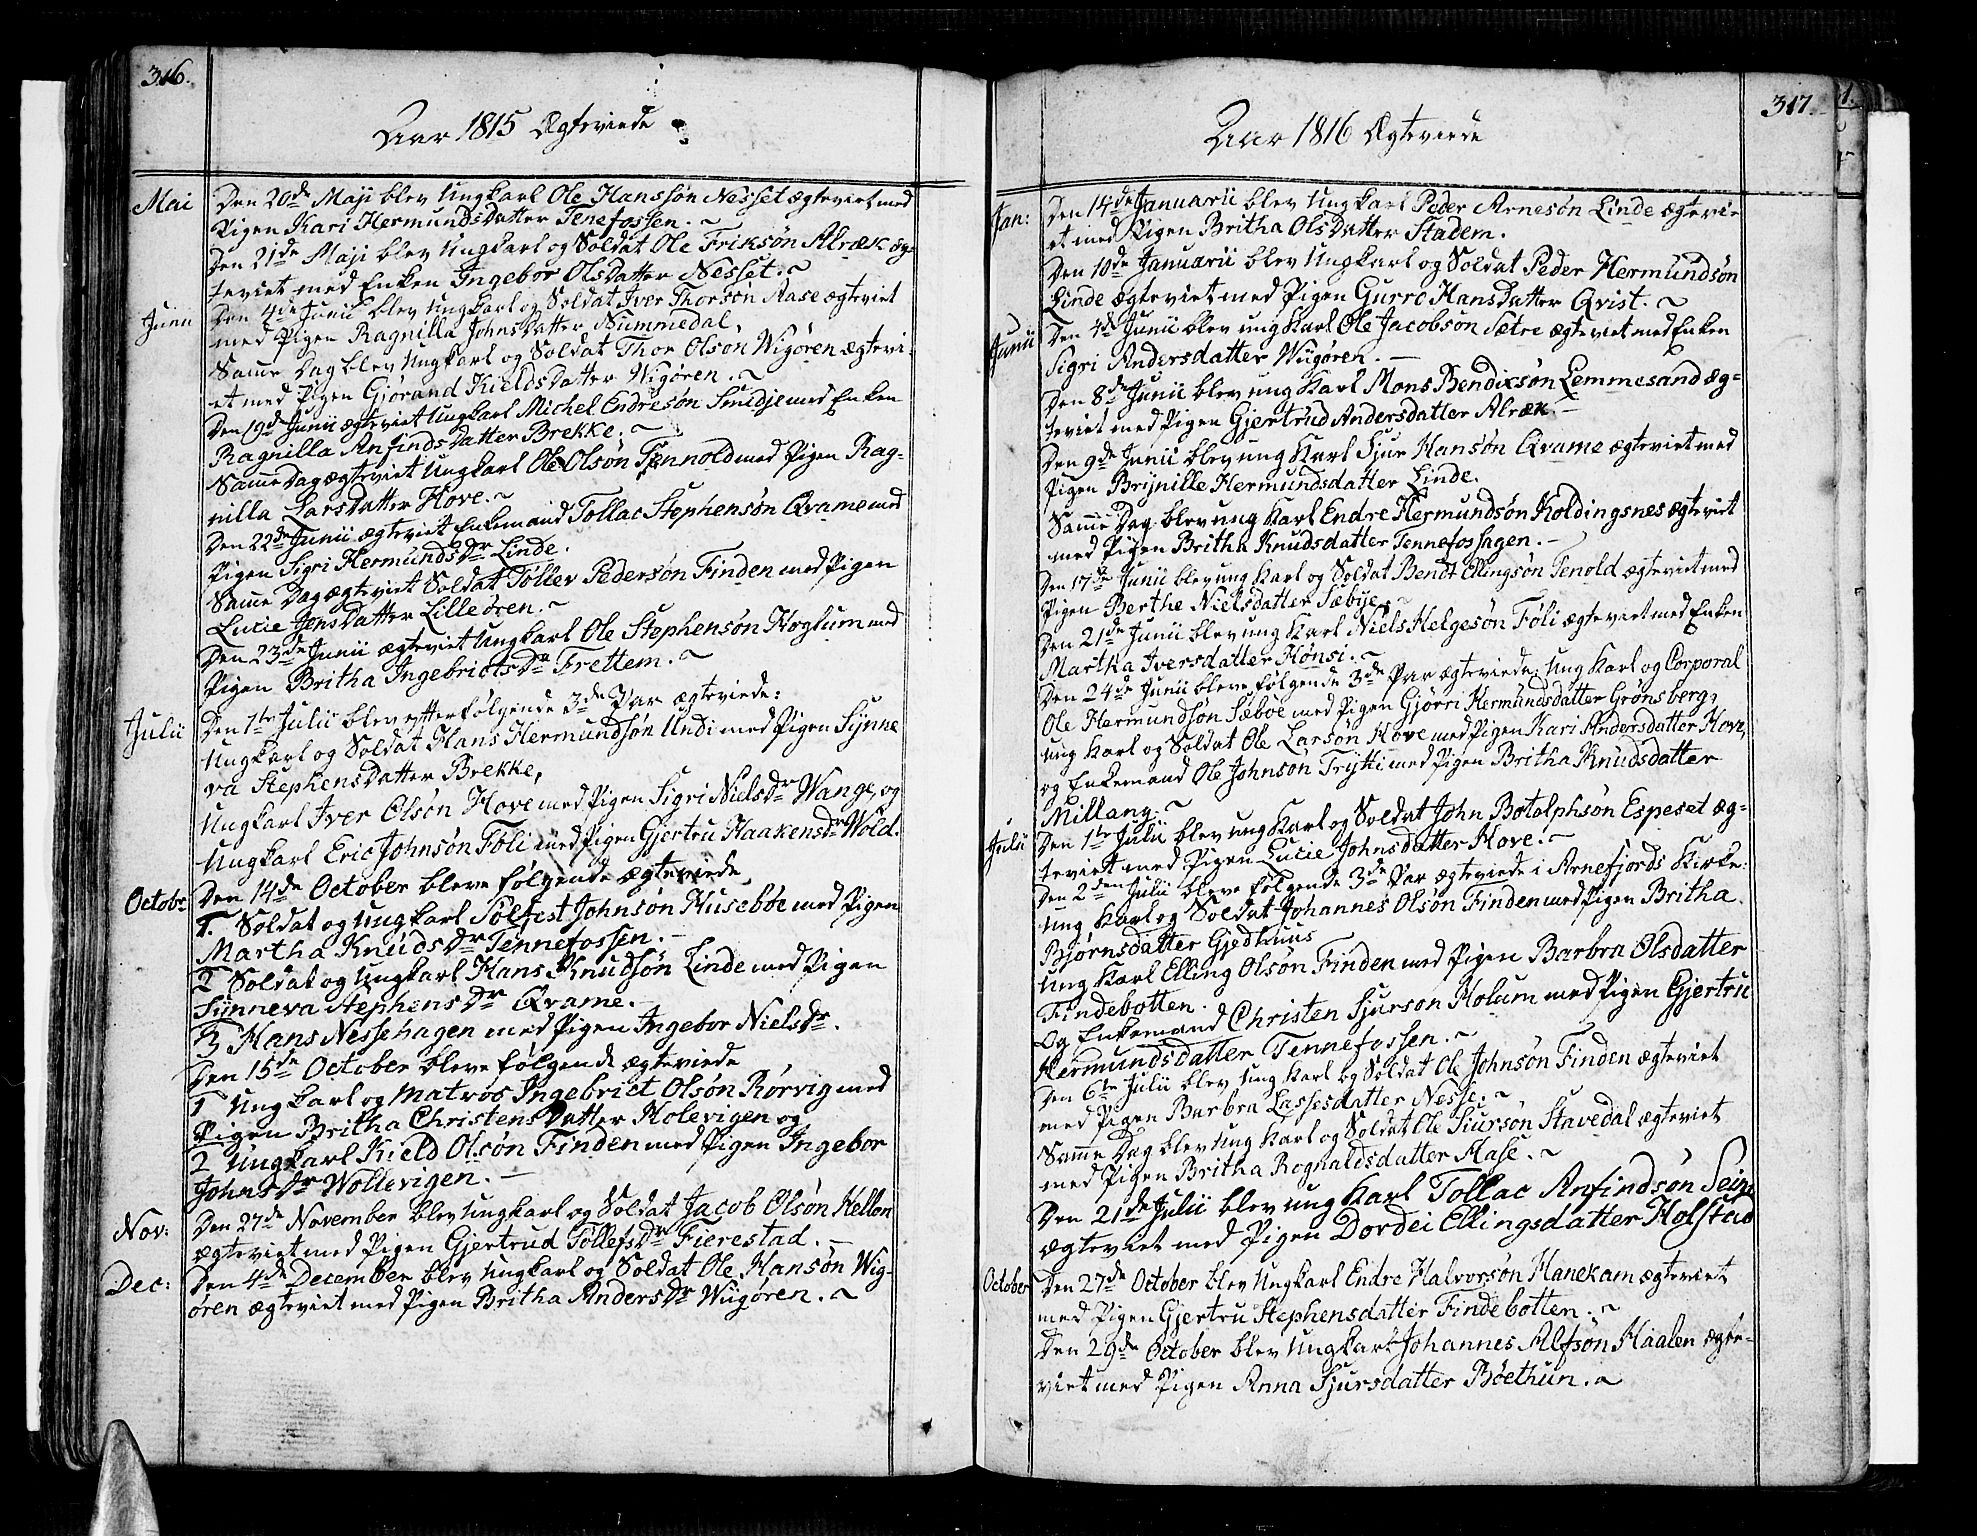 316.
Aar 1815 Ægteviede
Mai
Den 20de Maji blev Ungkarl Ole Hanssøn Nesset ægteviet med
Pigen Kari HermundsDatter Tenefossen. ~
Den 21de Maji blev Ungkarl og Soldat Ole Friksøn Alræk æg-
teviet med Enken Ingebor OlsDatter Nesset. ~
Junii
Den 4de Junii blev Ungkarl og Soldat Iver Thorsøn Aase ægteviet
med Pigen Ragnilla JohnsDatter Nummedal,
Samme Dag blev Ungkarl og Soldat Thor Olson Wigøren ægtevi-
et med Pigen Gjørand KieldsDatter Wigøren. ~
Den 19de Junii ægteviet Ungkarl Michel Endresøn Smidje med Enken
Ragnilla AnfindsDatter Brekke. ~
Samme Dag ægteviet Ungkarl Ole Olsøn Tennold med Pigen Rag-
nilla LarsDatter Hove. ~
Den 22de Junii ægteviet Enkemand Tollac Stephensøn Qvame med
Pigen Sigri HermundsDr Linde.
Samme Dag ægteviet Soldat Tøllev Pedersøn Finden med Pigen
Lucie JensDatter Lilleøren. ~
Den 23de Junii ægteviet Ungkarl Ole Stephensøn Høglum med
Pigen Britha IngebrictsDr Frettem. ~
Julii
Den 1te Julii blev efterfølgende 3de Par ægteviede:
Ungkarl og Soldat Hans Hermundsøn Undi med Pigen Synne
va StephensDatter Brekke,
Ungkarl Iver Olsøn Hove med Pigen Sigri NielsDr Wange, og
Ungkarl Eric Johnsøn Føli med Pigen Gjertru HaakensDr Wold.
Octobr
Den 14de October bleve følgende ægteviede
1. Soldat og Ungkarl Sølfest Johnsøn Husebøe med Pigen
Martha KnudsDr Tennefossen. –
2 Soldat og Ungkarl Hans Knudsøn Linde med Pigen
Synneva StephensDr Qvame. –
3 Hans Nessehagen med Pigen Ingebor NielsDr.
Den 15de October bleve følgende ægteviede
1 Ungkarl og Matros Ingebrict Olsøn Rørvig med
Pigen Britha ChristensDatter Holevigen og
2 Ungkarl Kield Olsøn Finden med Pigen Ingebor
JohnsDr Wollevigen. –
Nov:
Den 27de November blev Ungkarl og Soldat Jacob Olsøn Hellen
ægteviet med Pigen Gjertrud TøllefsDr Fierestad. –
Dec:
Den 4de December blev Ungkarl og Soldat Ole Hansøn Wig-
øren ægteviet med Pigen Britha AndersDr Wiigøren. ~
317.
Aar 1816 Ægteviede
Jan:
Den 14de Januarii blev Ungkarl Peder Arnesøn Linde ægtevi-
et med Pigen Britha OlsDatter Stadem.
Den 10de Januarii blev Ungkarl og Soldat Peder Hermundsøn
Linde ægteviet med Pigen Gurro HansDatter Qvist. ~
Junii
Den 4de Junii blev ung Karl Ole Jacobsøn Sætre ægteviet med Enken
Sigri Andersdatter Wiigøren. –
Den 8de Junii blev ung Karl Mons Bendixsøn Lemmesand æg-
teviet med Pigen Gjertrud Andersdatter Alræk. –
Den 9de Junii blev ung Karl Sjur Hansøn Qvame ægteviet med
Pigen Brynille Hermundsdatter Linde.
Samme Dag blev ung Karl Endre Hermundsøn Holdingsnes ægteviet
med Pigen Britha Knudsdatter Tennefoshagen. –
Den 17de Junii blev ung Karl og Soldat Bendt Ellingsøn Tenold ægteviet med
Pigen Berthe Nielsdatter Sæbye. ~
Den 21de Junii blev ung Karl Niels Helgesøn Føli ægteviet med Enken
Martha Iversdatter Hønsi. ~
Den 24de Junii bleve følgende 3de Par ægteviede: Ung Karl og Corporal
Ole Hermundsøn Sæbøe med Pigen Gjørri Hermundsdatter Grønsberg,
ung Karl og Soldat Ole Larsøn Hove med Pigen Kari Andersdatter Hove,
og Enkemand Ole Johnson Trytti med Pigen Britha Knudsdatter
Millang. ~
Julii
Den 1te Julii blev ung Karl og Soldat John Botolphsøn Espeset æg-
teviet med Pigen Lucie Johnsdatter Hove. ~
Den 2den Julii bleve følgende 3de Par ægteviede i Arnefjords Kirke:
ung Karl og Soldat Johannes Olsøn Finden med Pigen Britha
Bjørnsdatter Gjedhuus
ung Karl Elling Olsøn Finden med Pigen Barbra Olsdatter
Findebotten.
Og Enkemand Christen Sjurson Holum med Pigen Gjertru
Hermundsdatter Tennefossen. ~
Den 6te Julii blev ung Karl og Soldat Ole Johnsøn Finden ægteviet
med Pigen Barbra Lassesdatter Nesse. ~
Samme Dag blev ung Karl og Soldat Ole Siursøn Stavedal ægteviet
med Pigen Britha Rognaldsdatter Aase. ~
Den 21de Julii blev ung Karl Tollac Anfindsøn Seim
ægteviet med Pigen Dordei Ellingsdatter Holstad
October
Den 27de October blev Ungkarl Endre Halvorsøn Hanekam ægteviet
med Pigen Gjertru Stephensdatter Findebotten. ~
Den 29de October blev Ungkarl Johannes Alfsøn Haalen ægte-
viet med Pigen Anna Sjursdatter Bøethun. ~